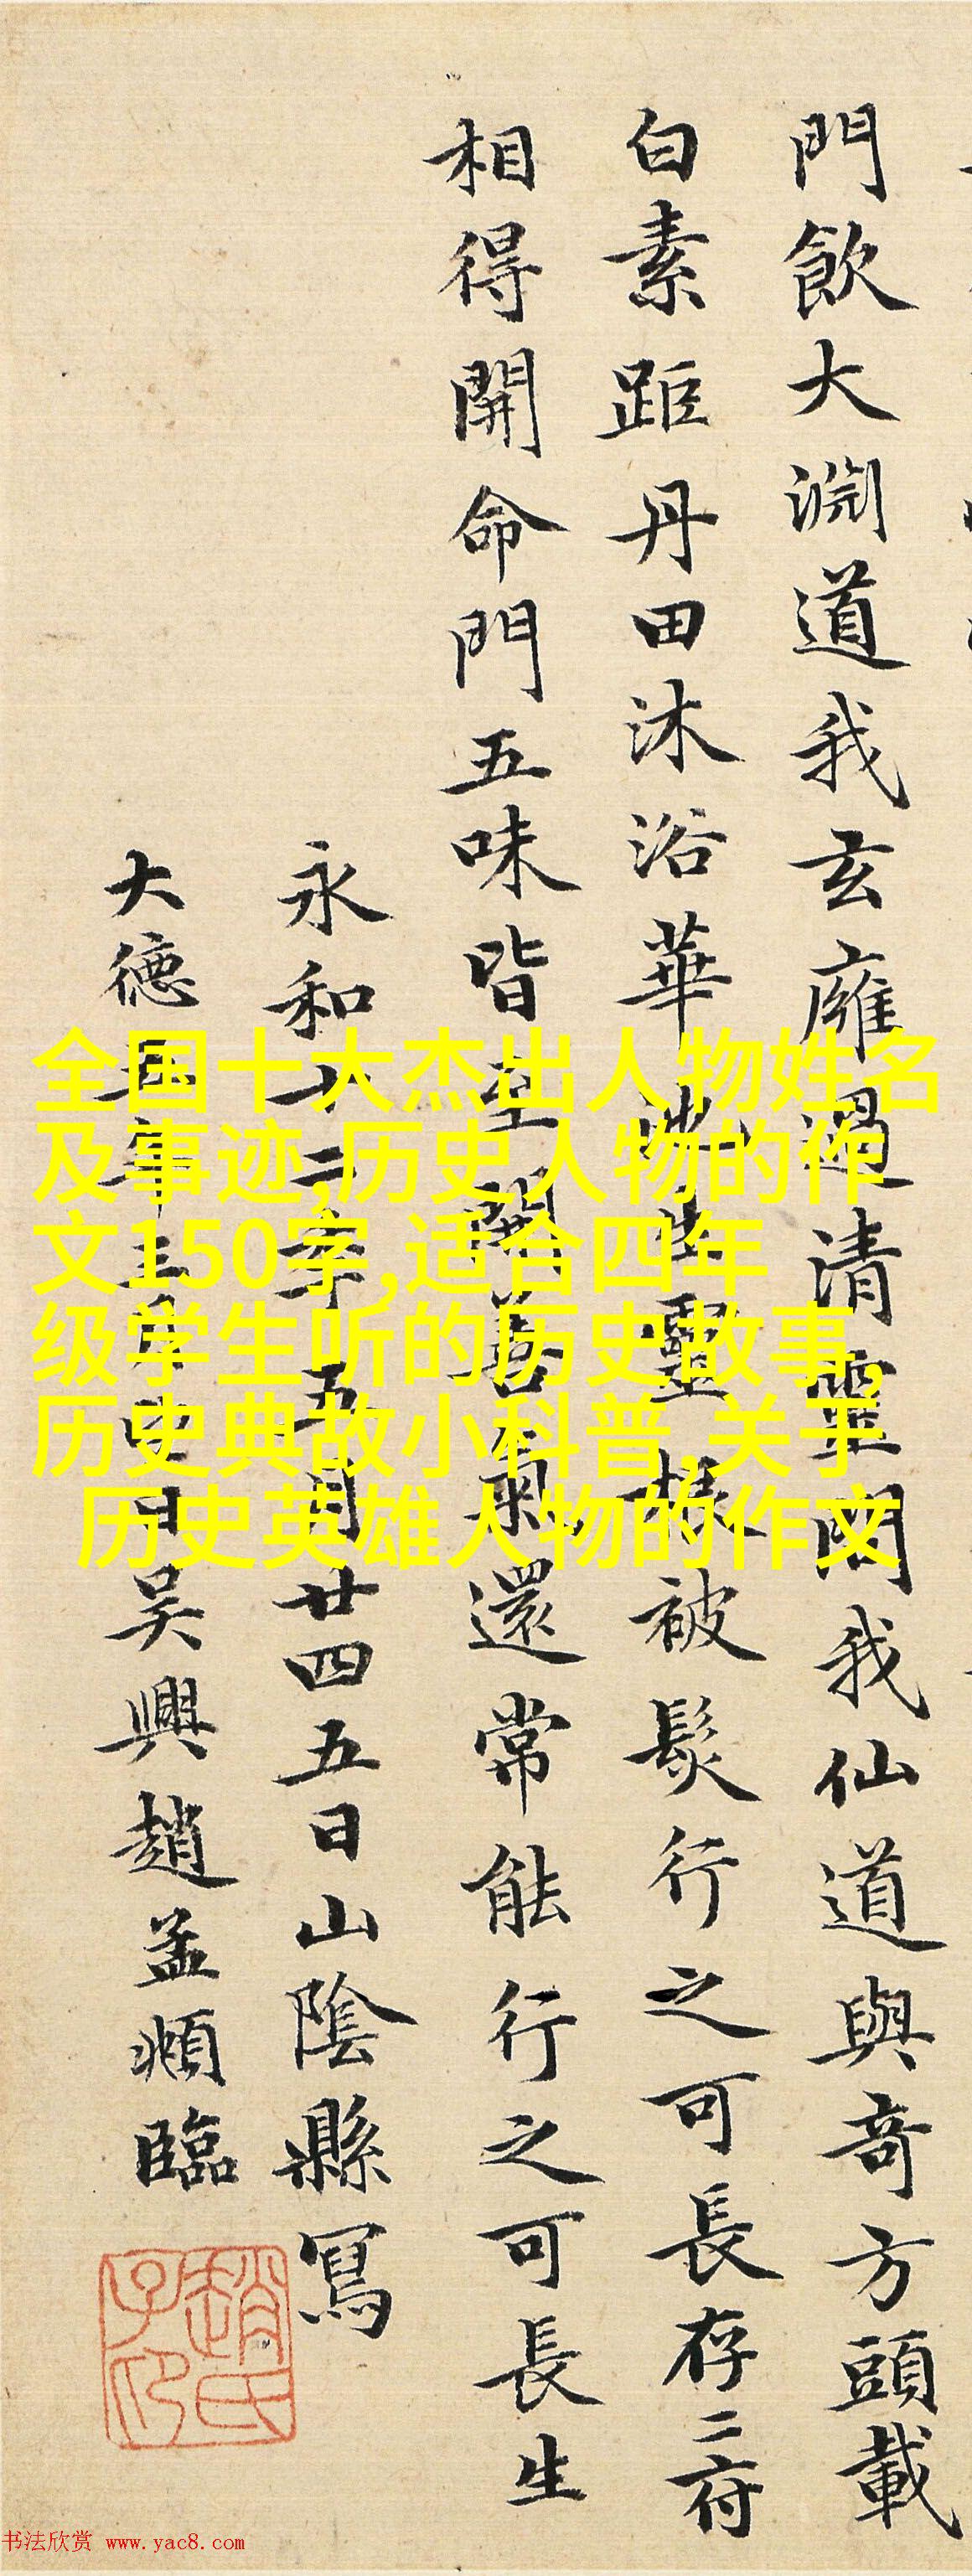 門飲大淵道我玄癰過清靈問我仙道與奇方頭載
白素距丹田沐浴華池生靈根被髮行之可長存二府
相得開命門五味皆至開善氣還常能行之可長生
永和十二年五月廿四五日山陰縣寫
大德五年三月四日吴興趙孟頫臨
趙氏子印
全国十大杰出人物姓名
及事迹,历史人物的作
文150字,适合四年
级学生听的历史故事,
历史典故小科普,关于
历史英雄人物的作文
书法欣赏 www.yac8.com